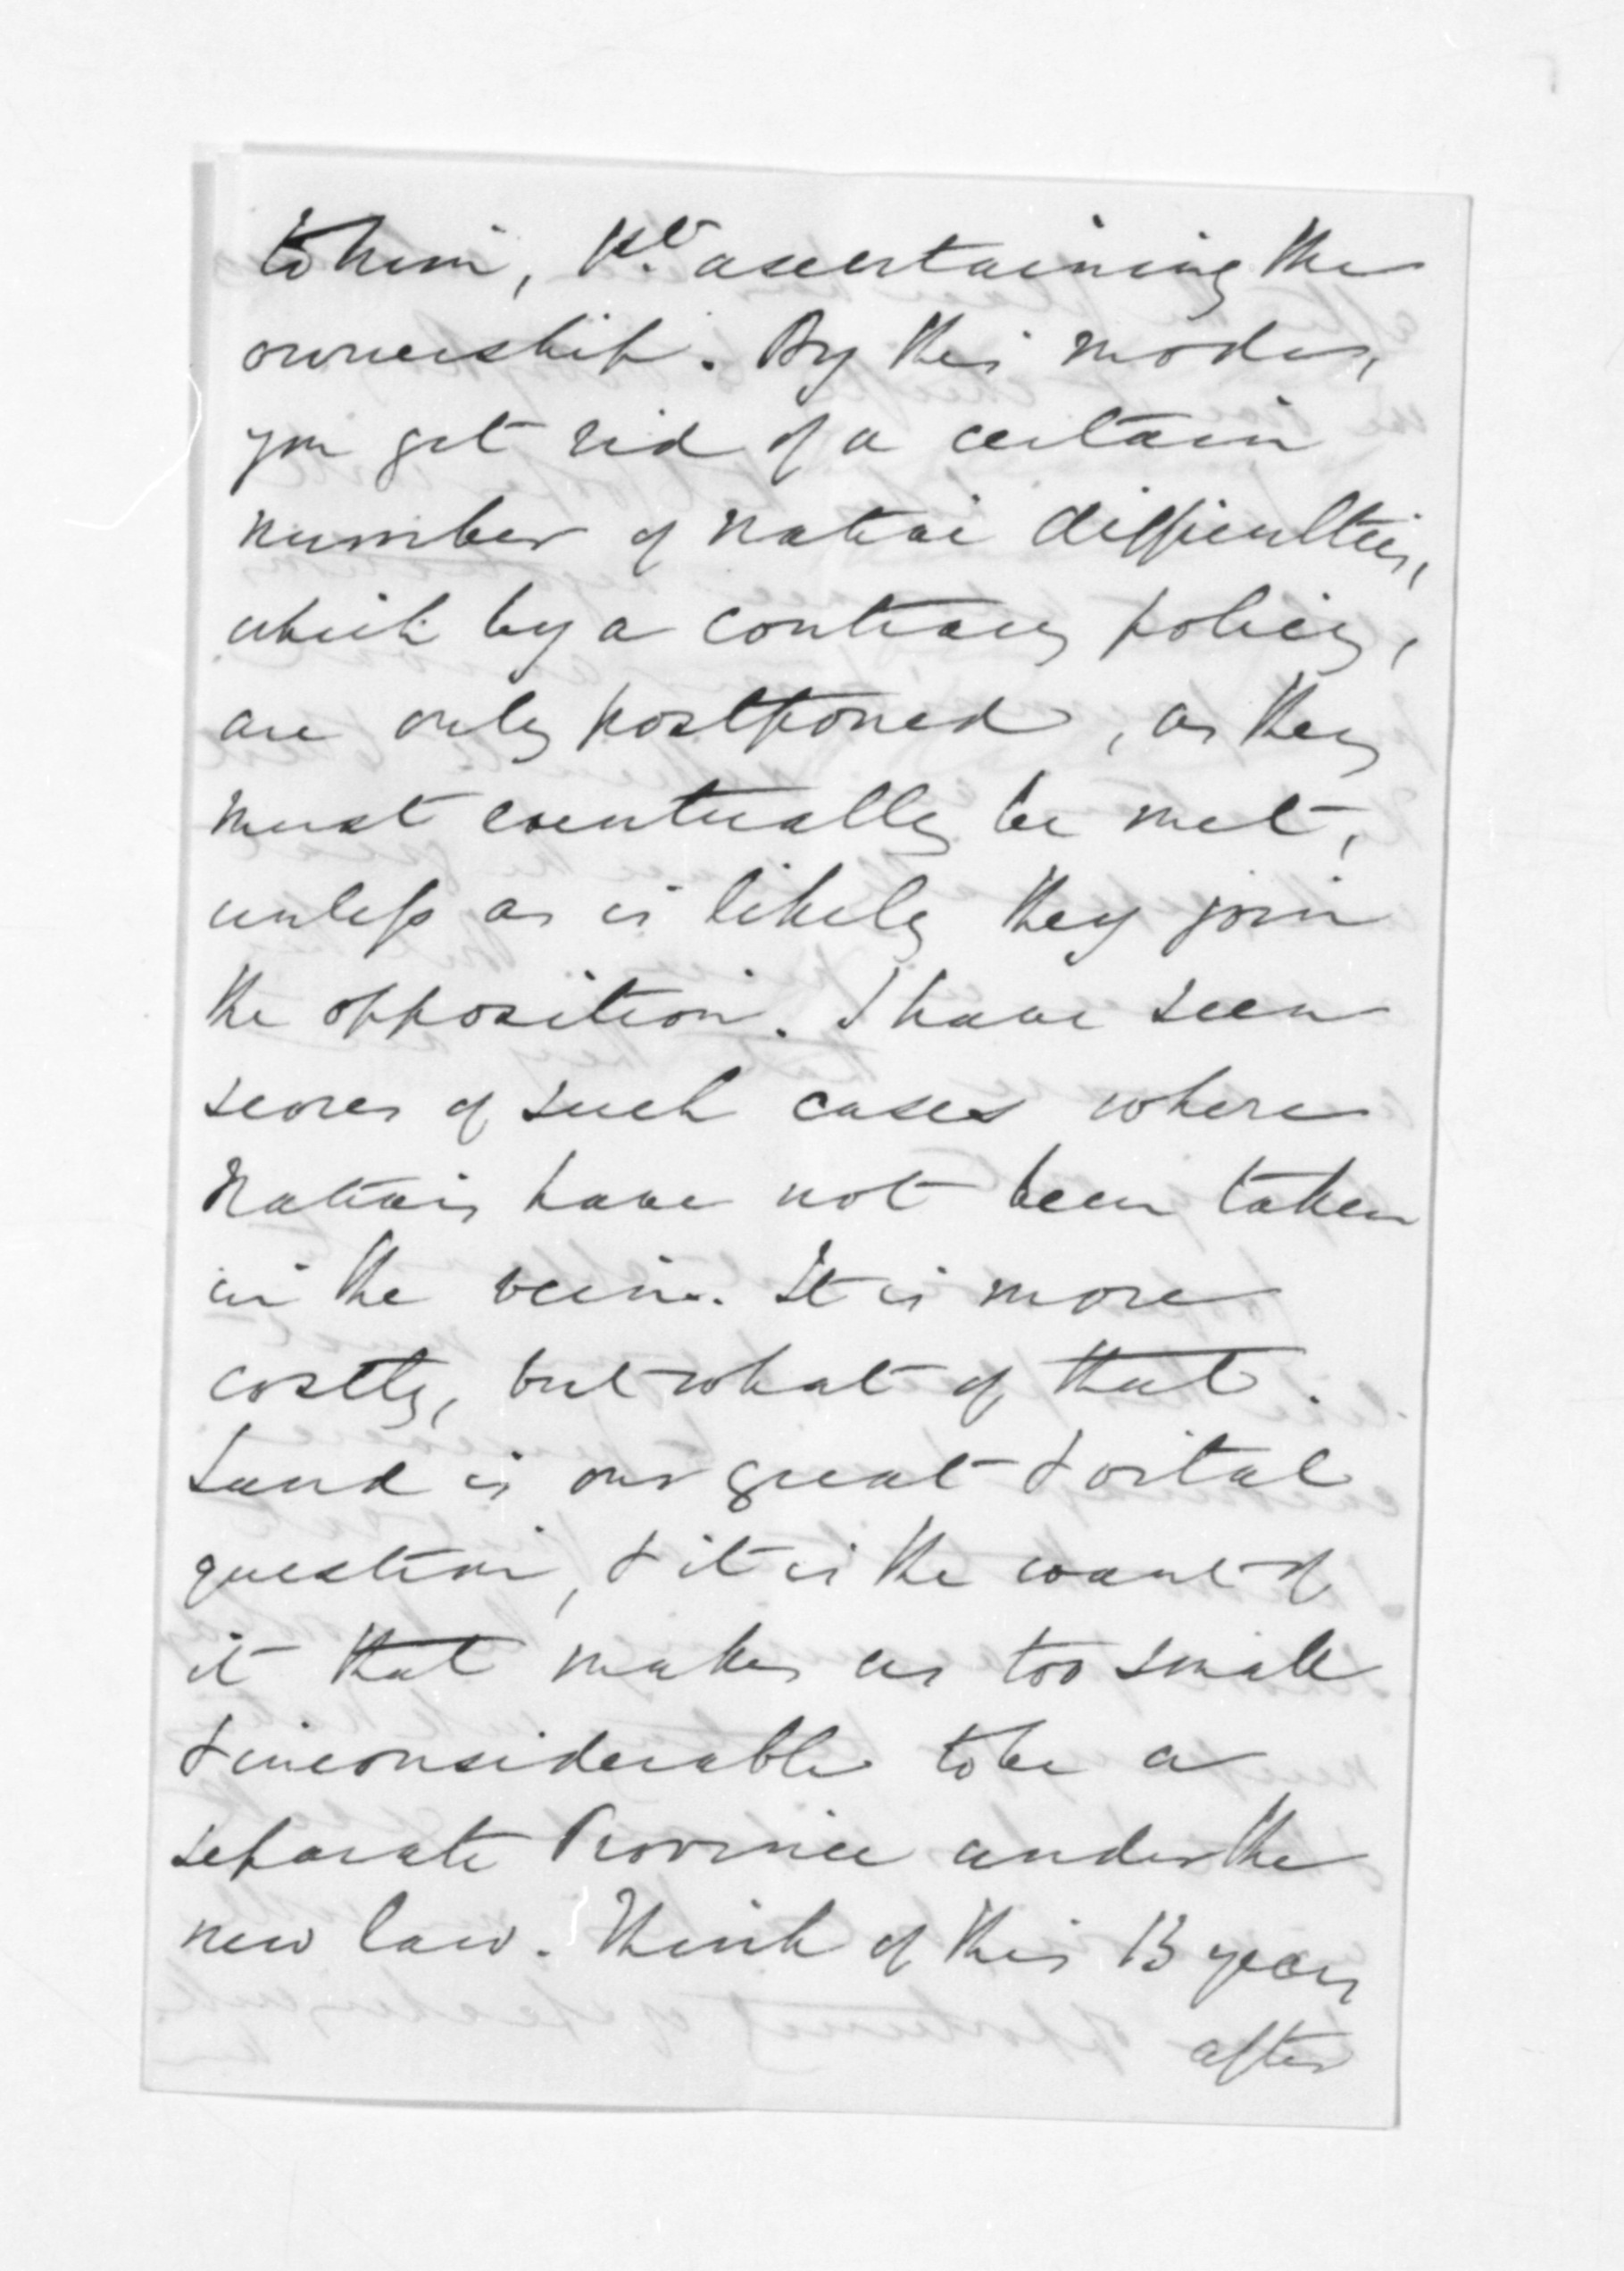 to him, 1st. ascertaining the
ownership. By this mode,
you get rid of a certain
number of native difficulties,
which by a contrary policy,
are only postponed, as they
must eventually be met,
unless as is likely they join
the opposition. I have seen
scores of such cases where
Natives have not been taken
in the vein. It is more
costly, but what of that.
Land is our great & vital
question, & it is the want of
it that makes us too small
& inconsiderable to be a
separate Province under the
new law. Think of this 13 years
after